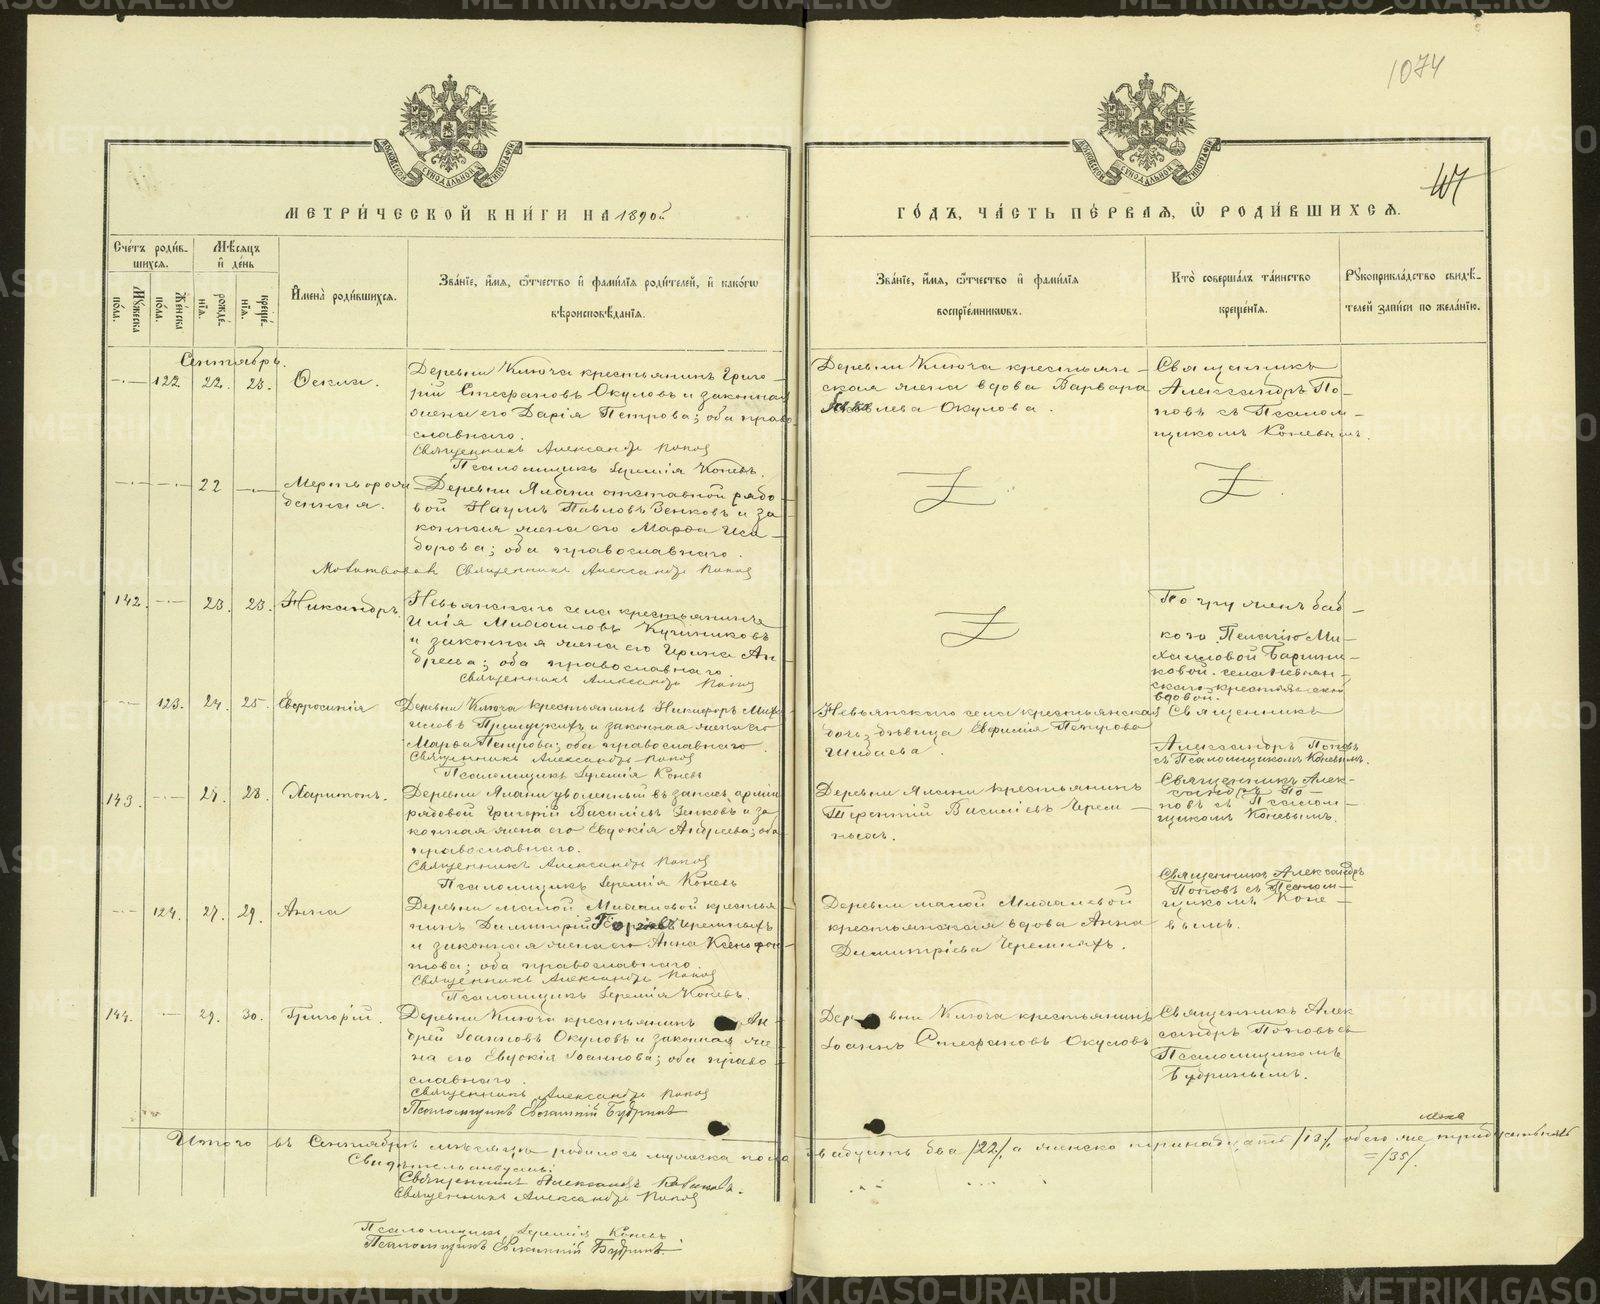 1074
47
МЕТРИЧЕСКОЙ КНИГИ НА 1890й
ГОДЪ, ЧАСТЬ ПЕРВАЯ, Ѡ РОДИВШИХСЯ.
Счетъ родив-
шихся.
Мужеска пола.
Женска пола.
Мѣсяцъ
и день
рожденія.
крещенія.
Имена родившихся.
Званіе, имя, отчество и фамилія родителей, и какого
вѣроисповѣданія.
Званіе, имя, отчество и фамилія
воспріемниковъ.
Кто совершалъ таинство
крещенія.
Рукоприкладство свидѣ-
телей записи по желанію.
Сентябрь.
122 22. 23. Ѳекла.
Деревни Ключа крестьянинъ Григо-
рій Стефановъ Окуловъ и законная
жена его Дарія Петрова; оба право-
славнаго.
Священникъ Александръ Поповъ
Псаломщикъ Іеремія Коневъ.
Деревни Ключа крестьян-
ская жена вдова Варвара
Окулова.
Священникъ
Александръ По-
повъ съ Псалом-
щикомъ Коневымъ.
22 Мертворож-
денная.
Деревни Ялани отставной рядо-
вой Наумъ Павловъ Зенковъ и за-
конная жена его Марѳа Иси-
дорова; оба православнаго.
Священникъ Александръ Поповъ
142. 23. 23. Никандръ.
Невьянскаго села крестьянинъ
Илія Михаиловъ
и законная жена его Ирина Ан-
дреева; оба православнаго.
Священникъ Александръ Поповъ
Погруженъ баб-
кою Пелагіею Ми-
хаиловой
ковой села Невьян-
скаго крестьянской
вдовой.
123. 24. 25. Евфросинія
Деревни Ключа крестьянинъ Никифоръ
и законная жена его
Марѳа Петрова; оба православнаго.
Священникъ Александръ Поповъ
Псаломщикъ Іеремія Коневъ
Невьянскаго села крестьянская
дочь, дѣвица Евфимія Петрова
Священникъ
Александръ Поповъ
съ Псаломщикомъ Коневымъ.
143. 28. Харитонъ.
Деревни Ялани уволенный въ запасъ арміи
рядовой Григорій Василіевъ Зенковъ и за-
конная жена его Евдокія Андреева; оба
православнаго.
Священникъ Александръ Поповъ
Псаломщикъ Іеремія Коневъ
Деревни Ялани крестьянинъ
Терентій Василіевъ Черем-
ныхъ.
Священникъ Алек-
сандръ По-
повъ съ Псалом-
щикомъ Коневымъ.
124. 27. 29. Анна
Деревни малой крестья-
нинъ Димитрій Черемныхъ
и законная жена его Анна Ксенофон-
това; оба православнаго.
Священникъ Александръ Поповъ
Псаломщикъ Іеремія Коневъ.
Деревни малой
крестьянская вдова Анна
Димитріева Черемныхъ.
Священникъ Александръ
Поповъ съ Псалом-
щикомъ Коне-
вымъ.
144. 29. 30. Григорій.
Деревни Ключа крестьянинъ Ан-
дрей Іоанновъ Окуловъ и законная же-
на его Евдокія Іоаннова; оба право-
славнаго.
Священникъ Александръ Поповъ
Псаломщикъ Евѳимій Будринъ
Деревни Ключа крестьянинъ
Іоаннъ Стефановъ Окуловъ
Священникъ Алек-
сандръ Поповъ съ
Псаломщикомъ
Будринымъ.
Итого въ Сентябрѣ мѣсяцѣ родилось мужеска пола двадцать два /22/, а женска тринадцать /13/, обоего же тридцать пять
=/35/.
Свидѣтельствуемъ:
Священникъ Александръ
Священникъ Александръ Поповъ
Псаломщикъ Іеремія Коневъ
Псаломщикъ Евѳимій Будринъ.
METRIKI.GASO-URAL.RU